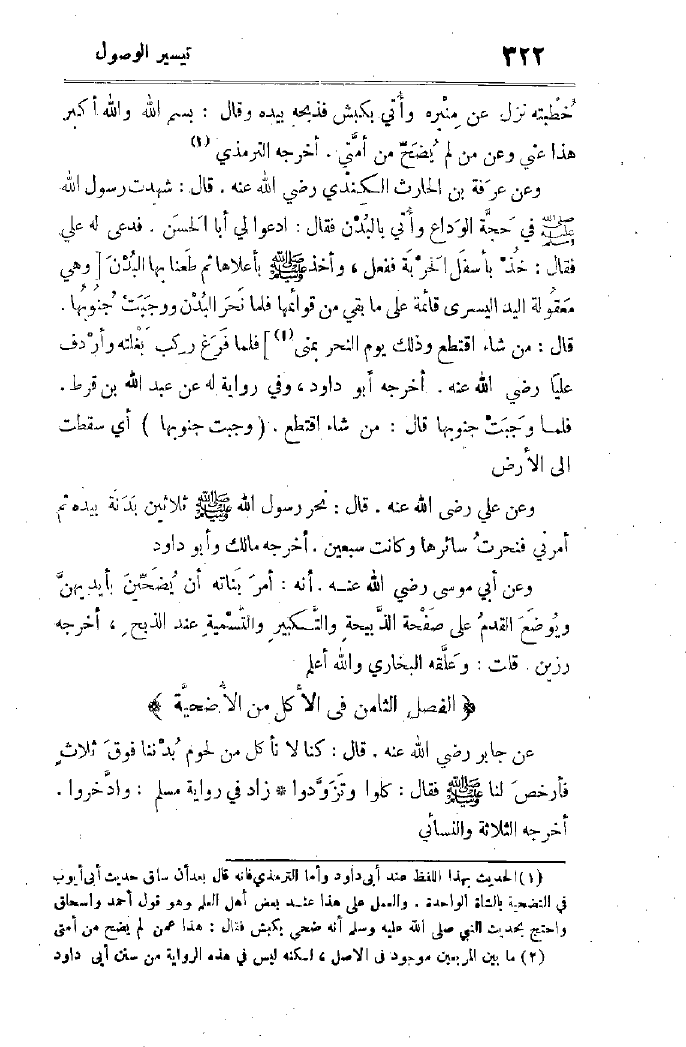 ٣٢٢
تيسير الوصول
خُطْبته نزل عن مِنْبره وأُتي بكبش فذبحه بيده وقال : بسم الله والله أكبر
هذا عني وعن من لم يُضَحِّ من أمَّتي . أخرجه الترمذي (١)
وعن عرفة بن الحارث الكندي رضي الله عنه . قال : شهدت رسول الله
ﷺ في حَجَّة الوداع وأُتي بالبُدْن فقال : ادعوا لي أبا الحسَن . فدعى له علي
فقال : خُذْ بأسفل الحَرْبة ففعل ، وأخذ ﷺ بأعلاها ثم طَعنا بها البُدْنَ [ وهي
مَعقُولة اليد اليسرى قائمة على ما بقي من قوائمها فلما نَحَر البُدْن ووجبَتْ جُنوبُها .
قال : من شاء اقتطع وذلك يوم النحر بمنى (١) ] فلما فَرَغ ركب بَغْلته وأرْدف
عليًا رضي الله عنه . أخرجه أبو داود ، وفي رواية له عن عبد الله بن قرط .
فلما وجَبَتْ جنوبها قال : من شاء اقتطع . ( وجبت جنوبها ) أي سقطت
الى الأرض
وعن علي رضي الله عنه . قال : نحر رسول الله ﷺ ثلاثين بَدَنَة بيده ثم
أمرني فنحرتُ سائرها وكانت سبعين . أخرجه مالك وأبو داود
وعن أبي موسى رضي الله عنه . أنه : أمرَ بَناته أن يُضَحِّينَ بأيديهنَّ
ويُوضَعَ القدمُ على صَفْحة الذَّبيحة والتَّكبير والتَّسْمية عند الذبح ، أخرجه
رزين . قلت : وعَلَّقه البخاري والله أعلم
﴿ الفصل الثامن فى الأكل من الأضحيَّة ﴾
عن جابر رضي الله عنه . قال : كنا لا نأكل من لحوم بُدْننا فوقَ ثلاث
فأرخصَ لنا ﷺ فقال : كلوا وتزَوَّدوا * زاد في رواية مسلم : وادَّخروا .
أخرجه الثلاثة والنسأئي
(١) الحديث بهذا اللفظ عند أبى داود وأما الترمذي فانه قال بعد أن ساق حديث أبى أيوب
في التضحية بالشاة الواحدة . والعمل على هذا عند بعض أهل العلم وهو قول أحمد واسحاق
واحتج بحديث النبي صلى الله عليه وسلم أنه ضحى بكبش فقال : هذا عمن لم يضح من أمتى
(٢) ما بين المربعين موجود فى الاصل ، لكنه ليس في هذه الرواية من سنن أبى داود